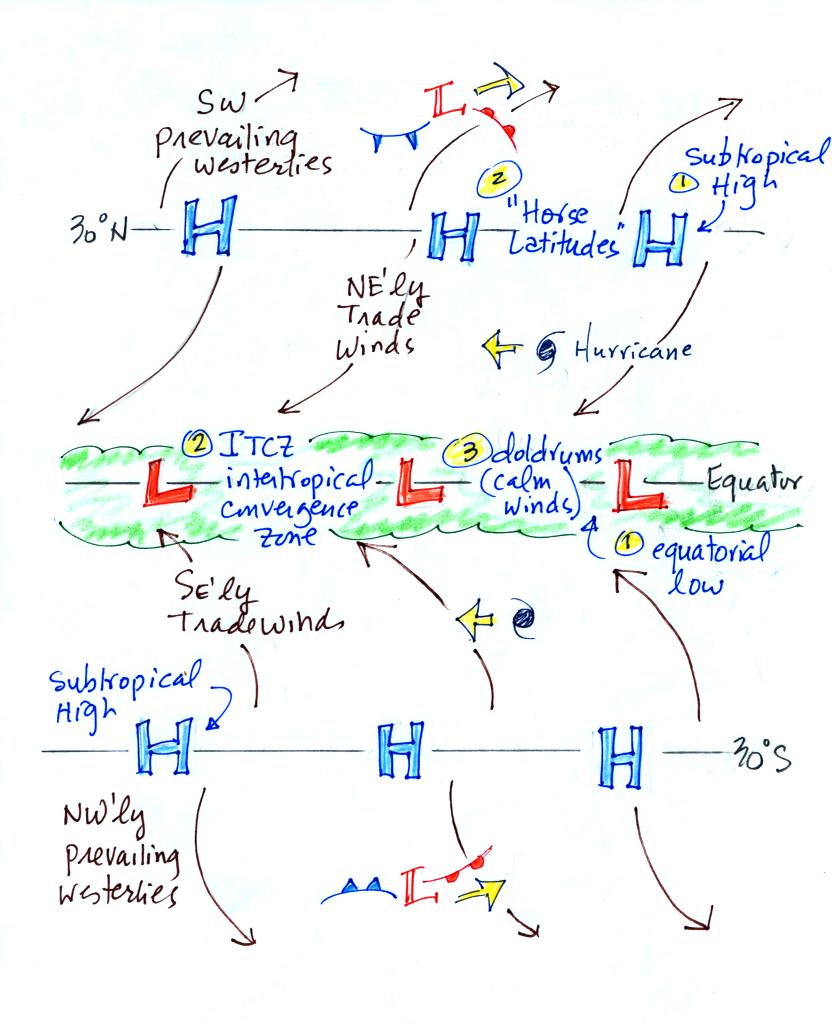 SW
prevailing
westerlies
L
Subtropical
① High
②
"Horse
Latitudes"
30°N
H
H
H
NE'ly
Trade
Winds
Hurricane
② ITCZ
intertropical
convergence
zone
③ doldrums
(calm
winds)
L
L
L
Equator
① equatorial
low
SE'ly
Trade winds
Subtropical
High
H
H
H
30°S
NW'ly
prevailing
westerlies
L